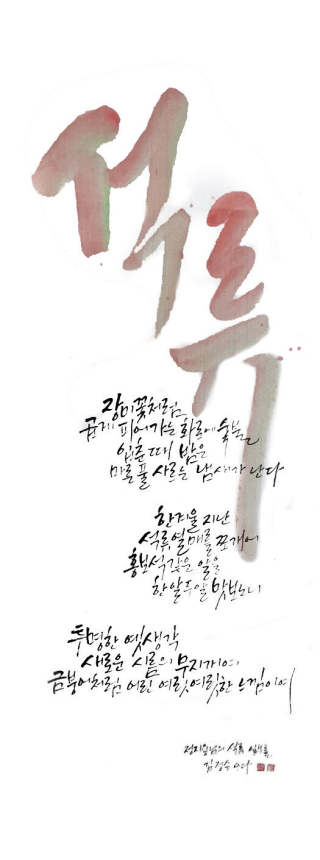 석류
장미꽃처럼
곱게 피어가는 화로에 숯불
입춘때 밤은
마른풀 사르는 냄새가 난다
한겨울 지난
석류열매를 쪼개어
홍보석 같은 알을
한알 두알 맛보노니
투명한 옛생각
새로운 시름의 무지개여
금붕어처럼 어린 여릿여릿한 느낌이여
정지용님의 석류 일부를
김정수 쓰다